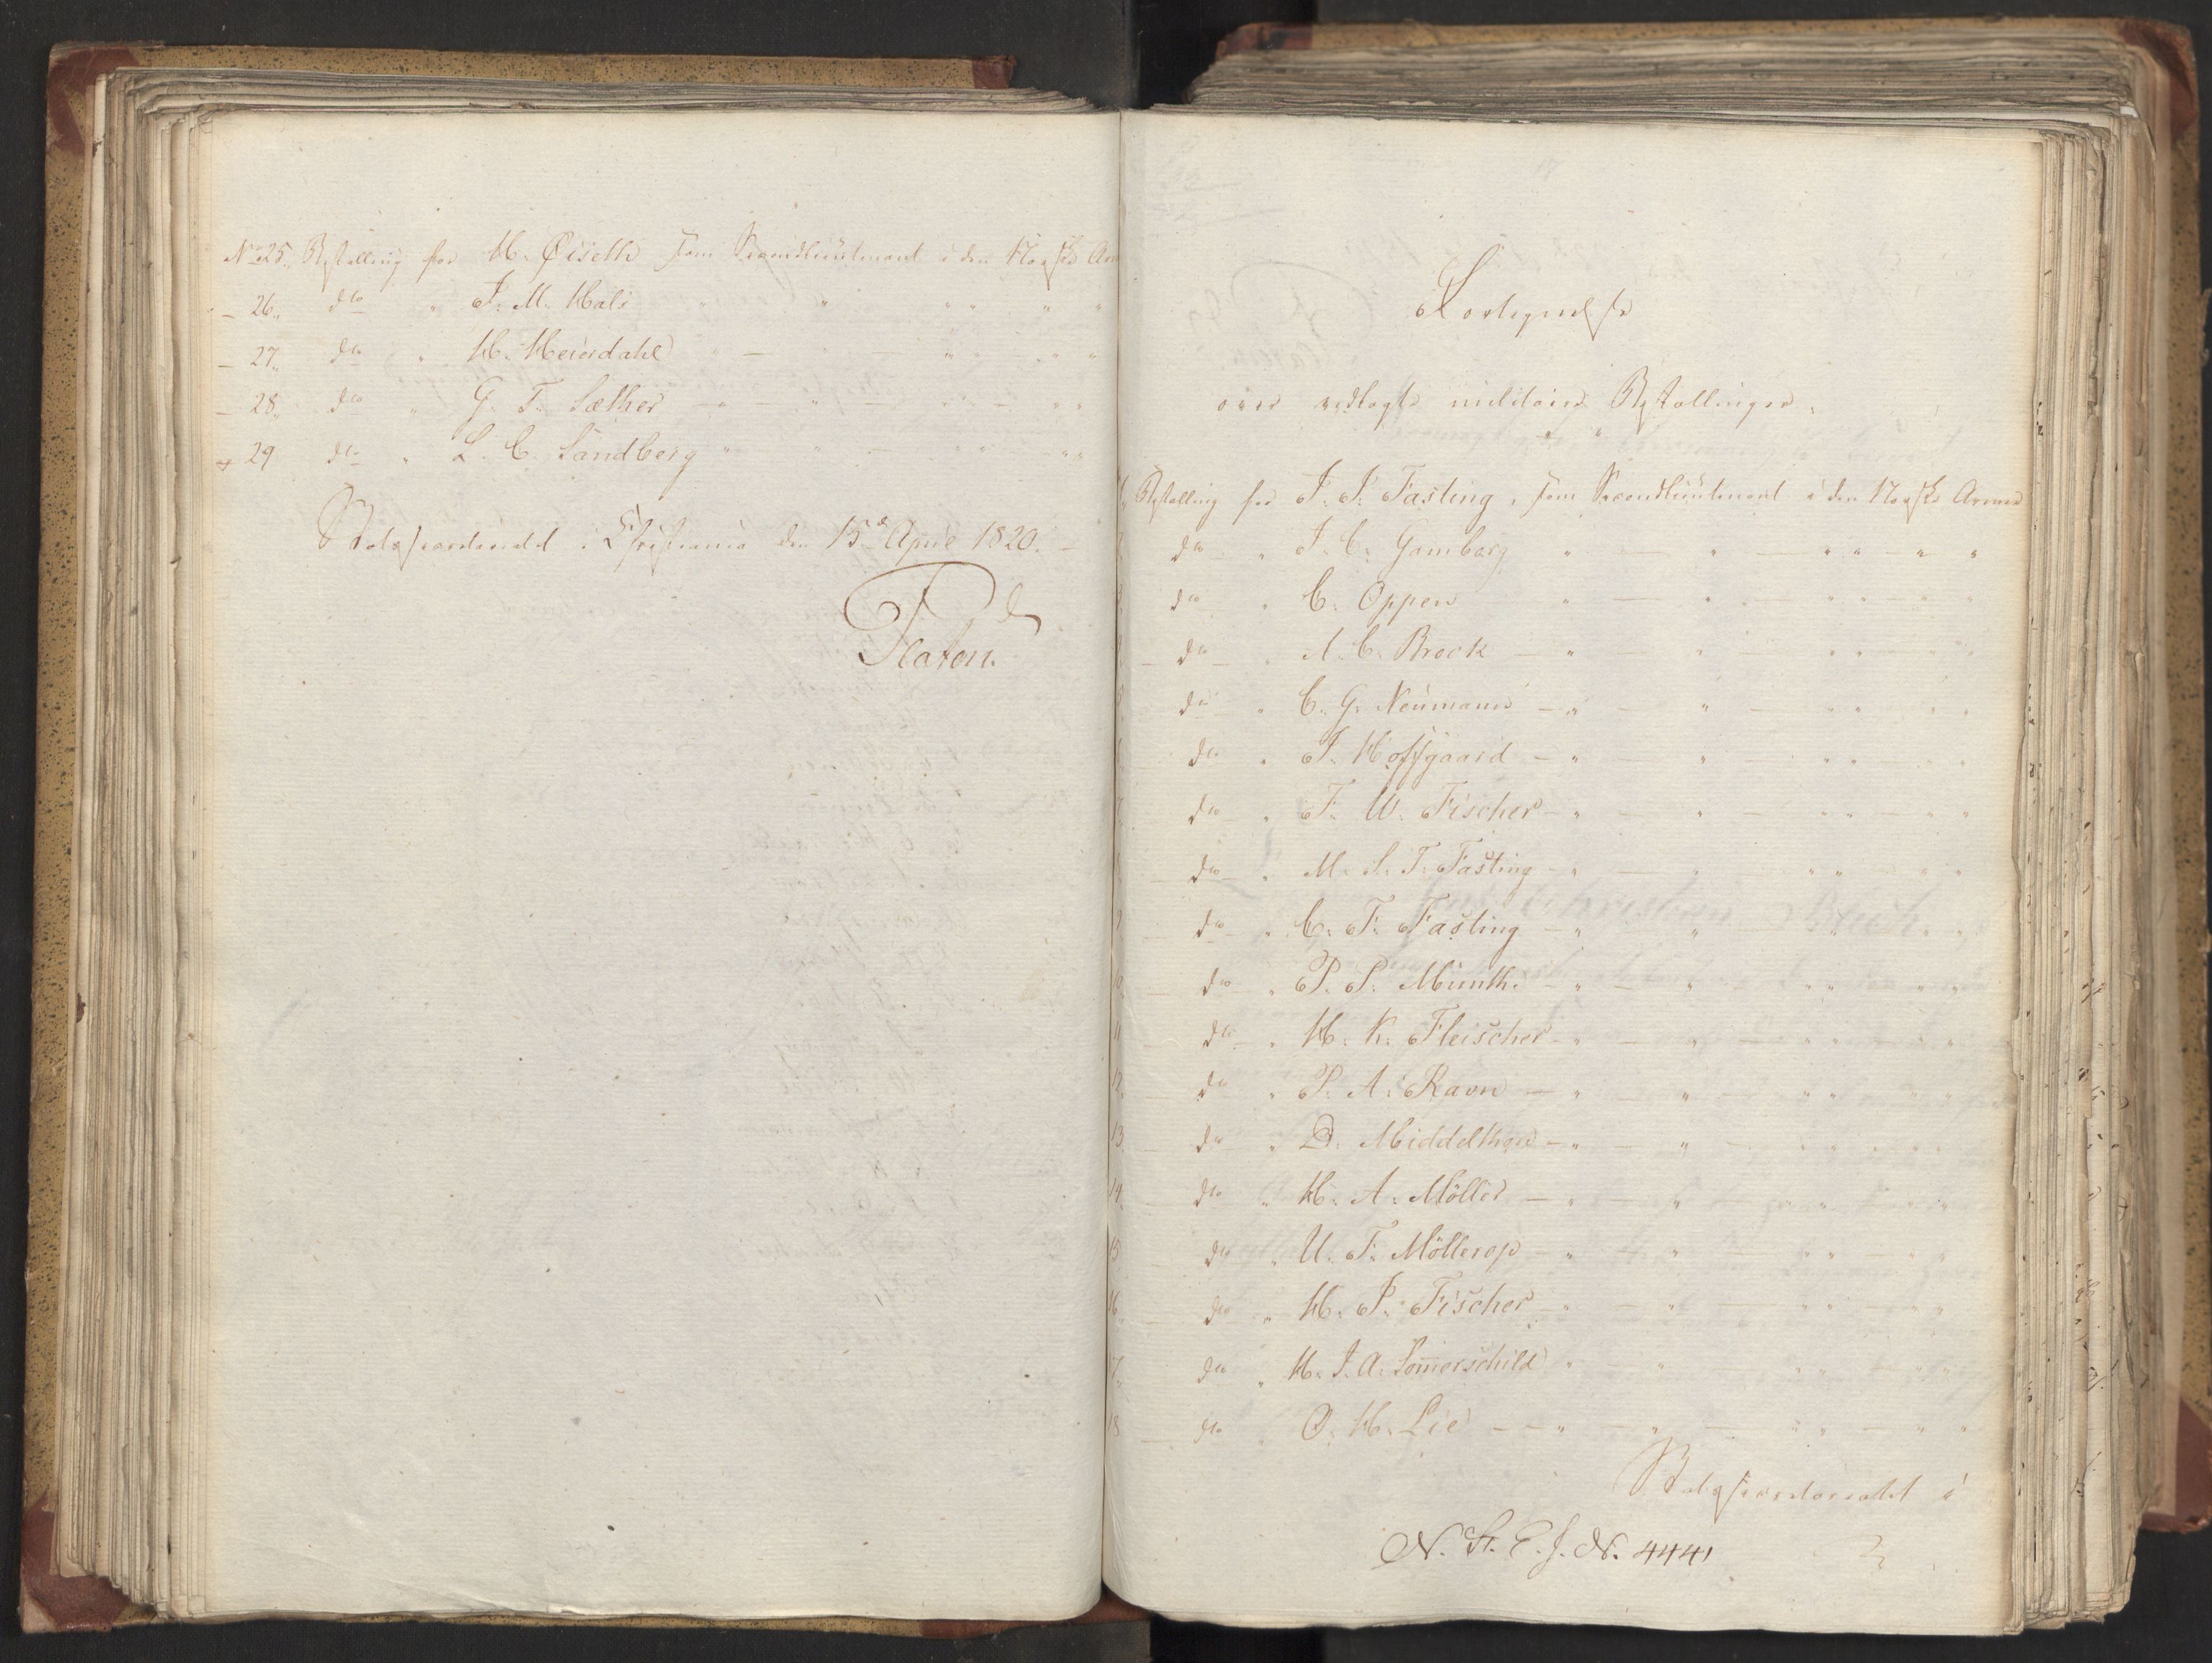 No 25. Bestalling for H. Øiseth som Secondlieutenant i den Norske Arm
— 26. do " J. M. Hals " " " " " "
— 27. do " H. Heierdahl " — " — " " " " "
— 28. do " G. F. Sæther — " — " — " " — " "
— 29 do " L. C. Sandberg " " — " " " "
Statssecretariatet i Christiania den 15de April 1820. —
Platen.
Fortegnelse
over vedlagte militaire Bestallinger.
Bestalling for J. S. Fasting, som Secondlieutenant i den Norske Armee
do " J. C. Gamborg " — " — " " " "
do " C. Oppen " — " — " " " "
do " A. C. Brock — " " — " " " "
do " C. G. Neumann — " — " — " " " "
do " J. Hoffgaard — " — " " " " "
do " F. W. Fischer — " — " — " " — " "
do " M. S. F. Fasting — " — " " " " "
9 do " C. F. Fasting — " " " "
10 do " P. S. Munthe — " — " " " " "
11 do " H. K. Fleischer — " — " — " " " "
12 do " P. A. Ravn — " — " — " " " "
13 do " D. Middelthon — " — " — " " " "
14 do " H. A. Möller — " — " " " "
15 do " U. F. Möllerop — " " " " " "
16 do " H. P. Fischer — " — " — " " " "
17 do " H. J. A. Som̄erschild " — " " " " "
18 do " O. H. Lie — — " — " — " " — " "
Statssecretariatet i
N. St. E. J. No. 4441